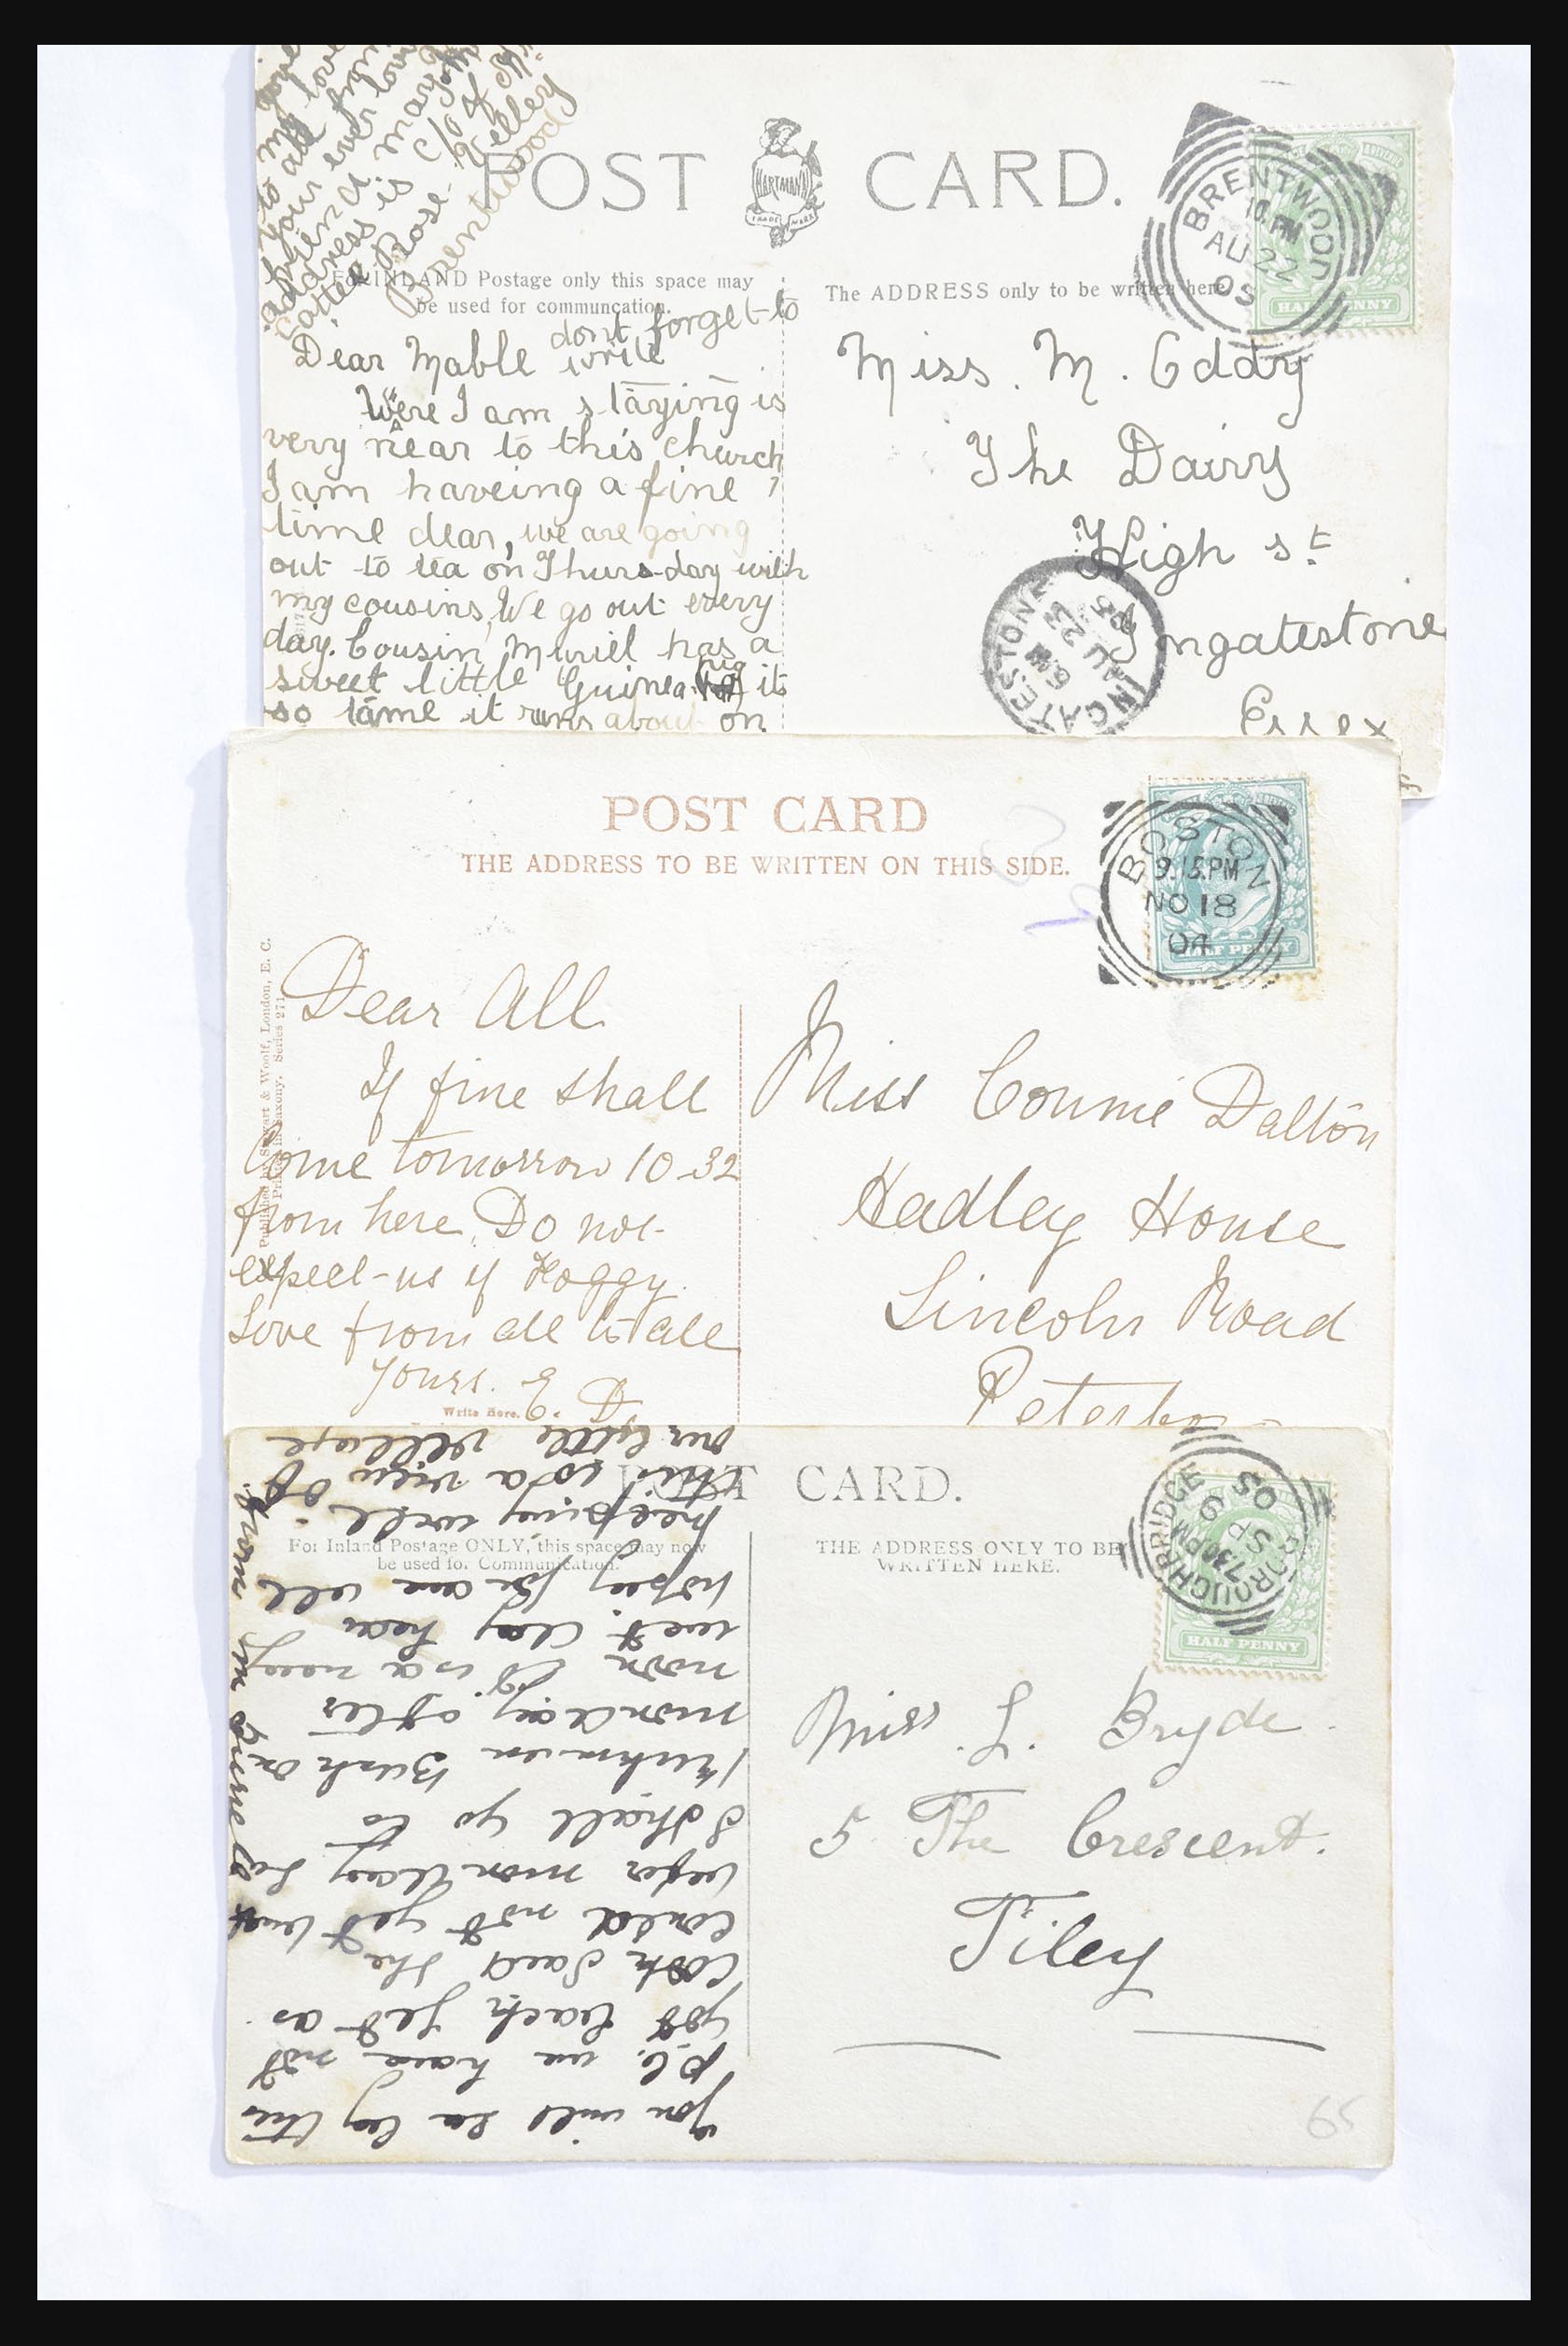 POST CARD.
HARTMANN
TRADE MARK
BRENTWOOD
10. PM
AU 22
05
HALF PENNY
For INLAND Postage only this space may
be used for communcation.
The ADDRESS only to be written here.
Brentwood
dont forget to
write
Dear Mable
Were I am staying is
very near to this church
I am haveing a fine
time dear, we are going
out to tea on Thursday with
my cousins, We go out every
day. Cousin Muriel has a
sweet little Guinea pig its
so tame it runs about on
Miss. M. Eddy
The Dairy
High st
Ingatestone
Essex
INGATESTONE
AU 23
05
POST CARD
THE ADDRESS TO BE WRITTEN ON THIS SIDE.
BOSTON
9.15.PM
NO 18
04
HALF PENNY
Published by Stewart & Woolf, London, E. C.
Printed in Saxony. Series 271.
Dear All
If fine shall
Come tomorrow 10-32
from here. Do not
expect us if Foggy.
Love from all to all
Yours. E. D.
Write Here.
Miss Connie Dalton
Hadley House
Lincoln Road
Peterboro
POST CARD.
For Inland Postage ONLY, this space may now
be used for Communication.
THE ADDRESS ONLY TO BE
WRITTEN HERE.
BOROUGHBRIDGE
730PM
SP 9
05
HALF PENNY
You will see by this
P.C. we have not
got back yet as
Cook said she
could not get back
before monday so
I shall go to
Bush on
monday after
noon it is a very
wet day here
hoping you are all
keeping well
this is a view of
our little village
Miss. L. Bryde.
5 The Crescent.
Filey
65